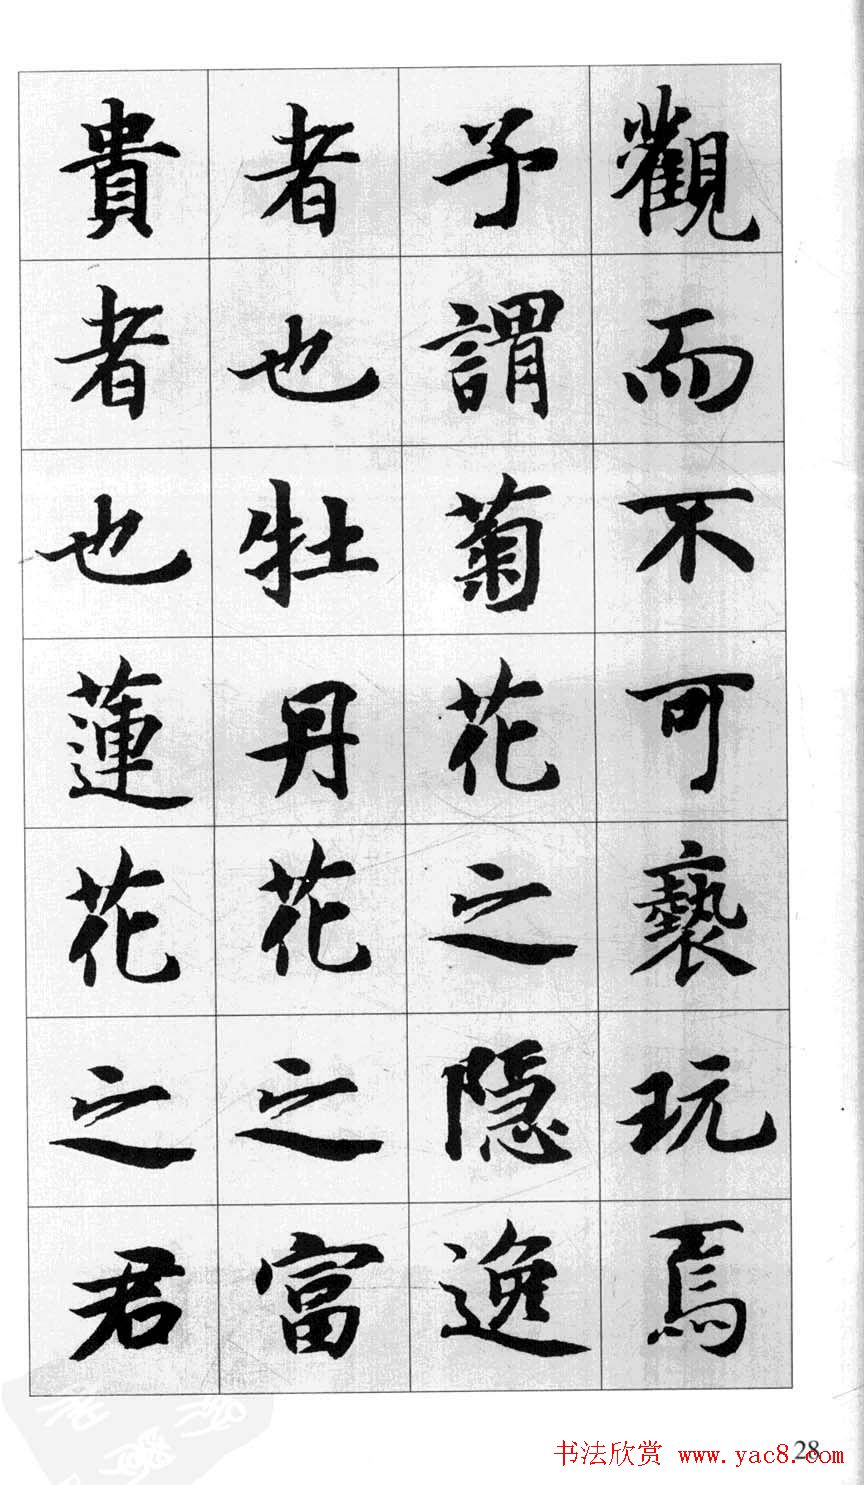 觀而不可褻玩焉
予謂菊花之隱逸
者也牡丹花之富
貴者也蓮花之君
书法欣赏 www.yac8.com
28